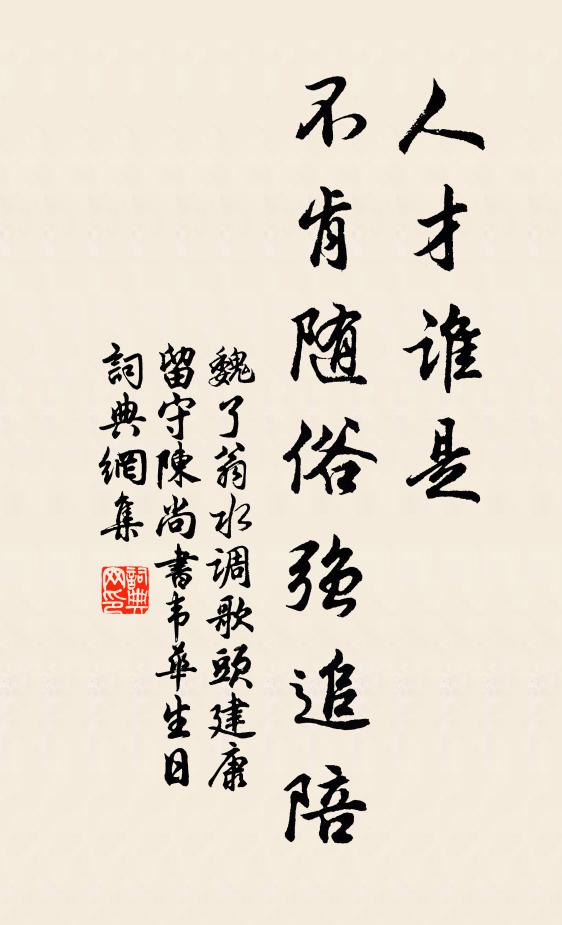 人才谁是
不肯随俗强追陪
魏了翁水调歌頭建康
留守陳尚書韦華生日
詞典網集
詞典网印